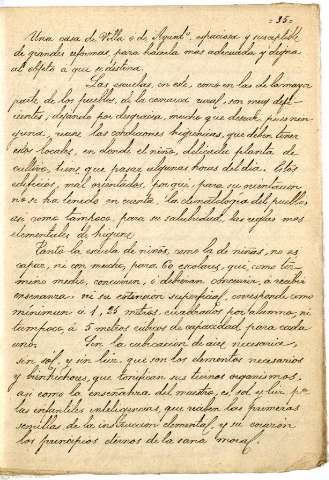 = 35 =
Una casa de Villa ó de Ayunt.º, espaciosa y susceptible
de grandes reformas, para hacerla mas adecuada y digna
al objeto a que se destina.
Las escuelas, en este, como en las de la mayor
parte de los pueblos, de la comarca rural, son muy defi-
cientes, dejando por desgracia, mucho que desear, pues nin-
guna, reune las condiciones higienicas, que deben tener
estos locales, en dónde el niño, delicada planta de
cultivo, tiene que pasar algunas horas del dia. Estos
edificios, mal orientados, porque, para su orientacion
no se ha tenido en cuenta, la climatologia del pueblo
asi como tampoco, para su salubridad, las reglas mas
elementales de higiene.
Tanto la escuela de niños, como la de niñas, no es
capaz, ni con mucho, para 60 escolares, que, como tér-
mino medio, concurren, ó deberian concurrir, a recibir
enseñanza: ni su extension superficial, corresponde como
minimun á 1,25 metros, cuadrados por alumno, ni
tampoco, á 5 metros cubicos de capacidad, para cada
uno. Sin la cubicacion de aire necesaria,
sin sol, y sin luz, que son los elementos necesarios
y bienhechores, que tonifican sus tiernos organismos,
asy como la enseñanza del maestro, es sol y luz p.ª
las infantiles inteligencias, que reciben las primeras
semillas de la instruccion elemental, y su corazón
los principios eternos de la sana moral.